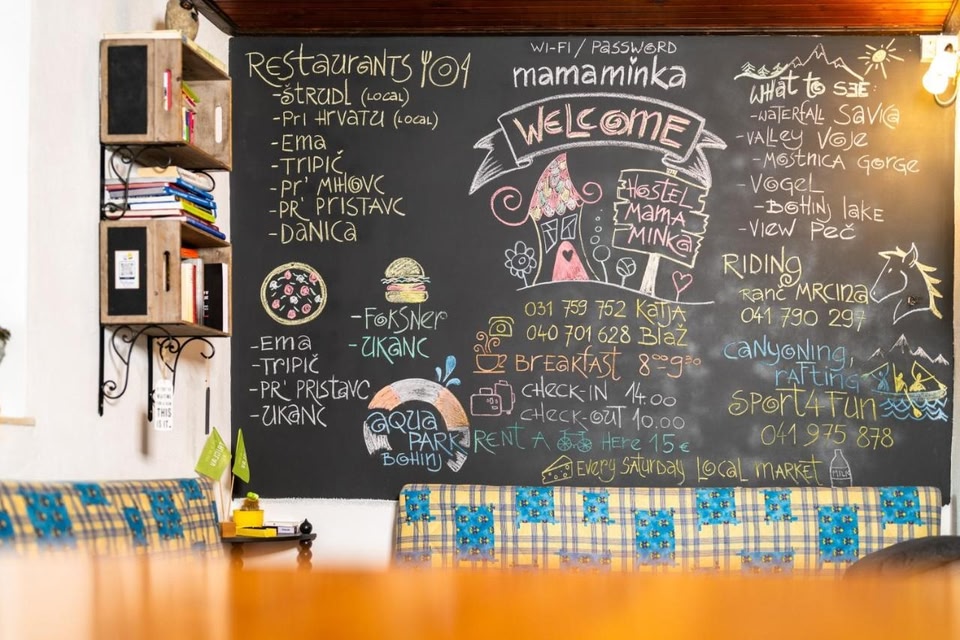 Restaurants
-ŠTRUDL (LOCAL)
-Pri Hrvatu (LOCAL)
-Ema
-TRIPIČ
-PR' MIHOVC
-PR' PRISTAVC
-DANICA
-Ema
-TRIPIČ
-PR' PRISTAVC
-UKANC
-FOKSNER
-UKANC
AQUA
PARK
BOHINJ
WI-FI / PASSWORD
mamaminka
WELCOME
HOSTEL
MAMA
MINKA
031 759 752 Katja
040 701 628 Blaž
BREAKFAST 8:00-9:30
CHECK-IN 14.00
CHECK-OUT 10.00
RENT A Here 15 €
Every Saturday Local market
MILK
WHAT TO SEE:
-WATERFALL SAVICA
-VALLEY VOJE
-MOSTNICA GORGE
-VOGEL
-BOHINJ LAKE
-VIEW PEČ
RIDING
Ranč MRCINA
041 790 297
CANYONING,
RAFTING
SPORT4FUN
041 975 878
THIS
IS IT.